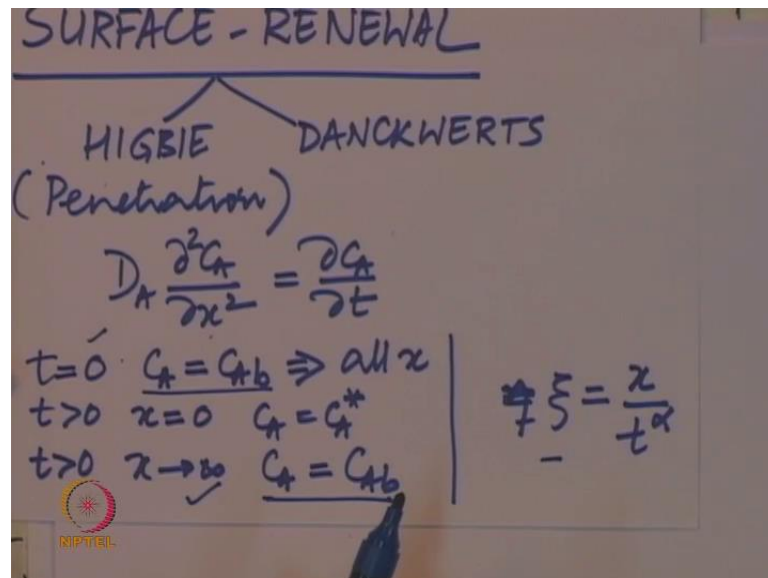 SURFACE - RENEWAL
HIGBIE DANCKWERTS
(Penetration)
D_A ∂²C_A/∂x² = ∂C_A/∂t
t=0 C_A = C_Ab ⇒ all x
t>0 x=0 C_A = C_A*
t>0 x→∞ C_A = C_Ab
ξ = x/t^α
NPTEL